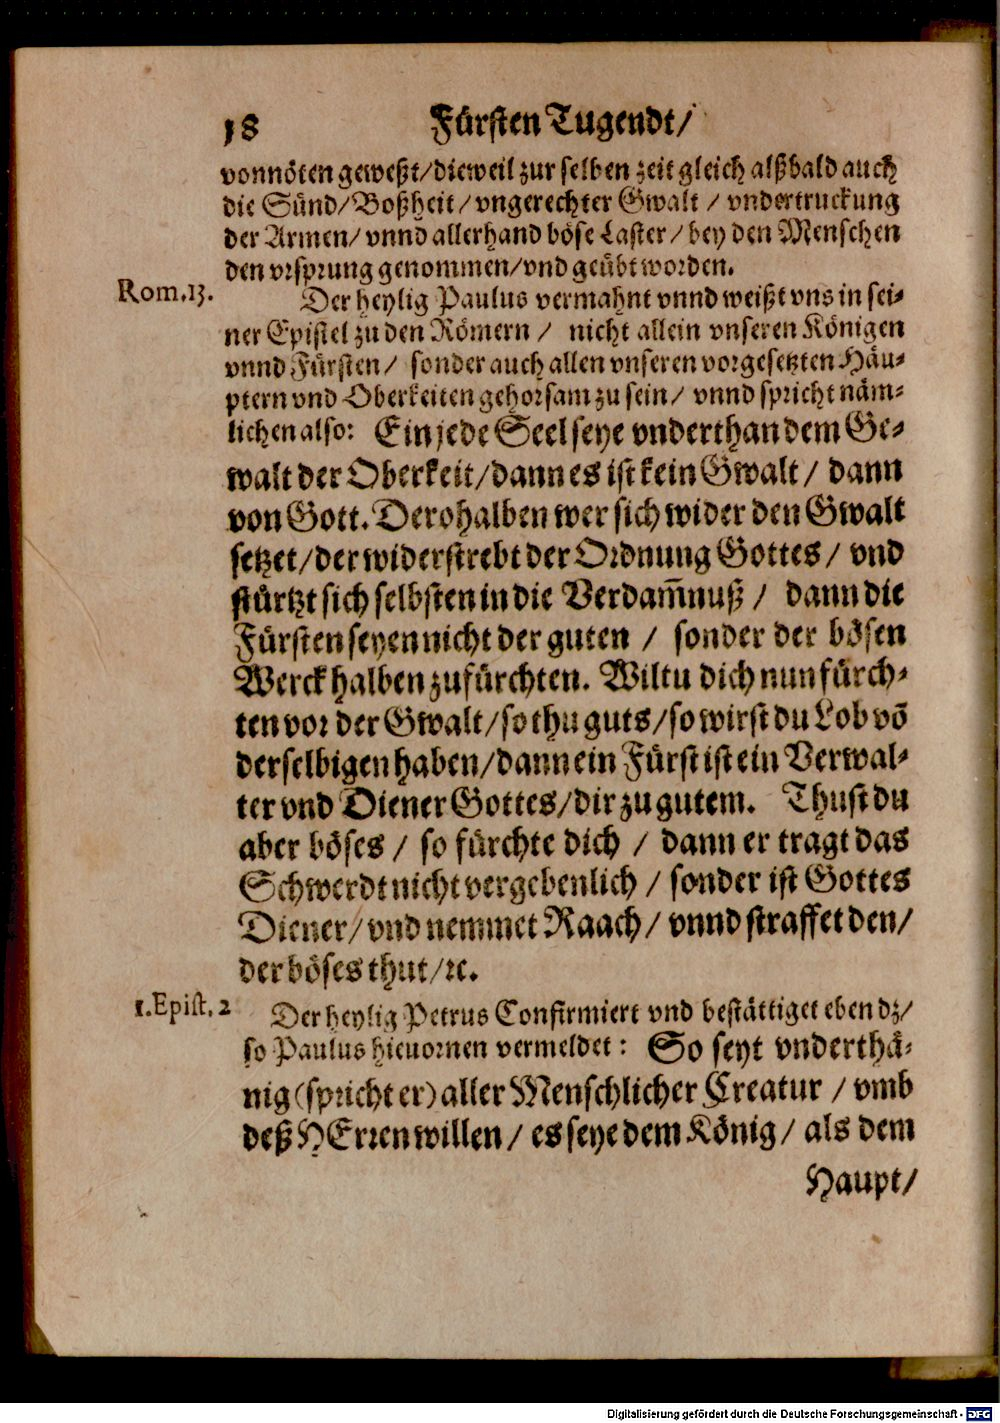 18 Fürsten Tugendt/
vonnöten geweßt/dieweil zur selben zeit gleich alßbald auch
die Sünd/Boßheit/vngerechter Gwalt / vndertruckung
der Armen/ vnnd allerhand böse Laster/ bey den Menschen
den vrsprung genommen/vnd geübt worden.
Rom.13. Der heylig Paulus vermahnt vnnd weißt vns in sei-
ner Epistel zu den Römern / nicht allein vnseren Königen
vnnd Fürsten/ sonder auch allen vnseren vorgesetzten Häu-
ptern vnd Oberkeiten gehorsam zu sein/ vnnd spricht näm-
lichen also: Ein jede Seel seye vnderthan dem Ge-
walt der Oberkeit/dann es ist kein Gwalt/ dann
von Gott. Derohalben wer sich wider den Gwalt
setzet/der widerstrebt der Ordnung Gottes/ vnd
stürtzt sich selbsten in die Verdam̅nuß / dann die
Fürsten seyen nicht der guten / sonder der bösen
Werck halben zufürchten. Wiltu dich nun fürch-
ten vor der Gwalt/so thu guts/so wirst du Lob võ
derselbigen haben/dann ein Fürst ist ein Verwal-
ter vnd Diener Gottes/dir zu gutem. Thust du
aber böses / so fürchte dich / dann er tragt das
Schwerdt nicht vergebenlich / sonder ist Gottes
Diener/vnd nemmet Raach/ vnnd straffet den/
der böses thut/ꝛc.
1.Epist. 2 Der heylig Petrus Confirmiert vnd bestättiget eben dz/
so Paulus hieuornen vermeldet: So seyt vnderthä-
nig (spricht er) aller Menschlicher Creatur / vmb
deß HErren willen/ es seye dem König/ als dem
Haupt/
Digitalisierung gefördert durch die Deutsche Forschungsgemeinschaft - DFG